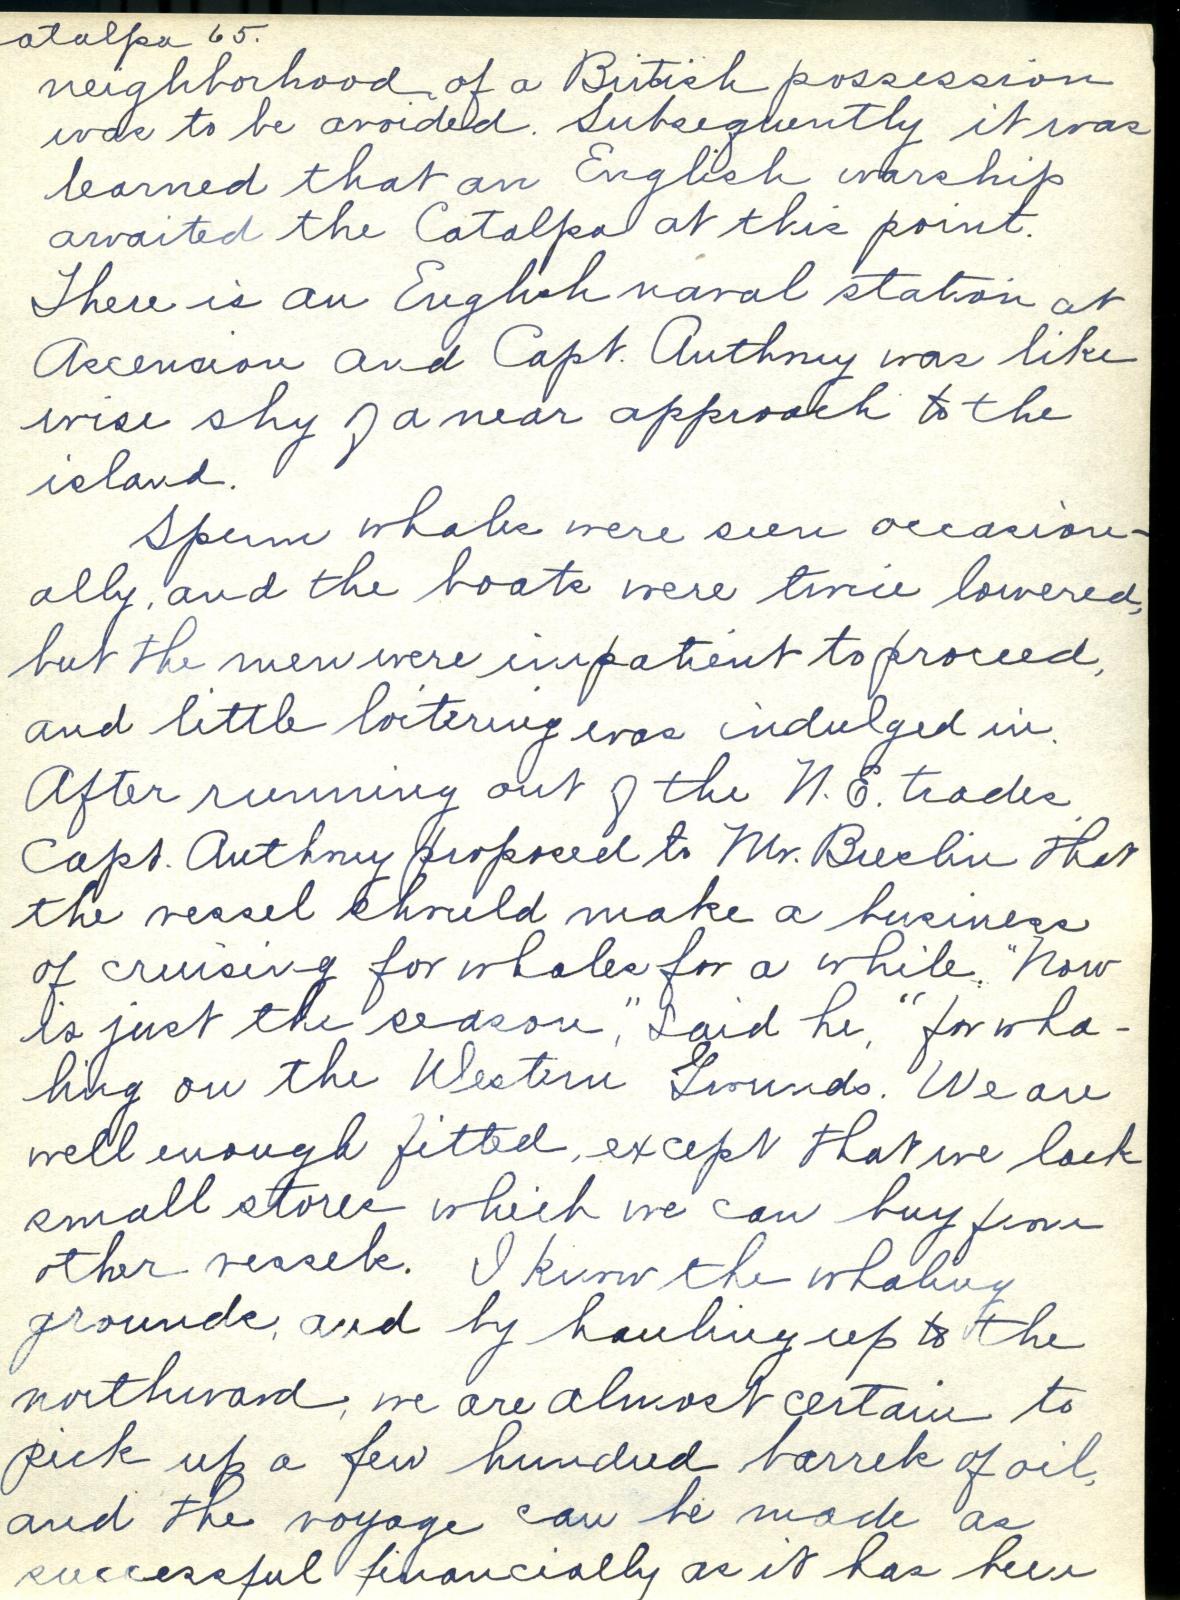 atalpa 65.
neighborhood of a British possession
was to be avoided. Subsequently it was
learned that an English warship
awaited the Catalpa at this point.
There is an English naval station at
Ascension and Capt. Anthony was like
wise shy of a near approach to the
island.
Sperm whales were seen occasion-
ally, and the boats were twice lowered,
but the men were impatient to proceed,
and little loitering was indulged in.
After running out of the N.E. trades
Capt. Anthony proposed to Mr. Breslin that
the vessel should make a business
of cruising for whales for a while. "Now
is just the season," said he, "for wha-
ling on the Western Grounds. We are
well enough fitted, except that we lack
small stores which we can buy from
other vessels. I know the whaling
grounds, and by hauling up to the
northward, we are almost certain to
pick up a few hundred barrels of oil,
and the voyage can be made as
successful financially as it has been